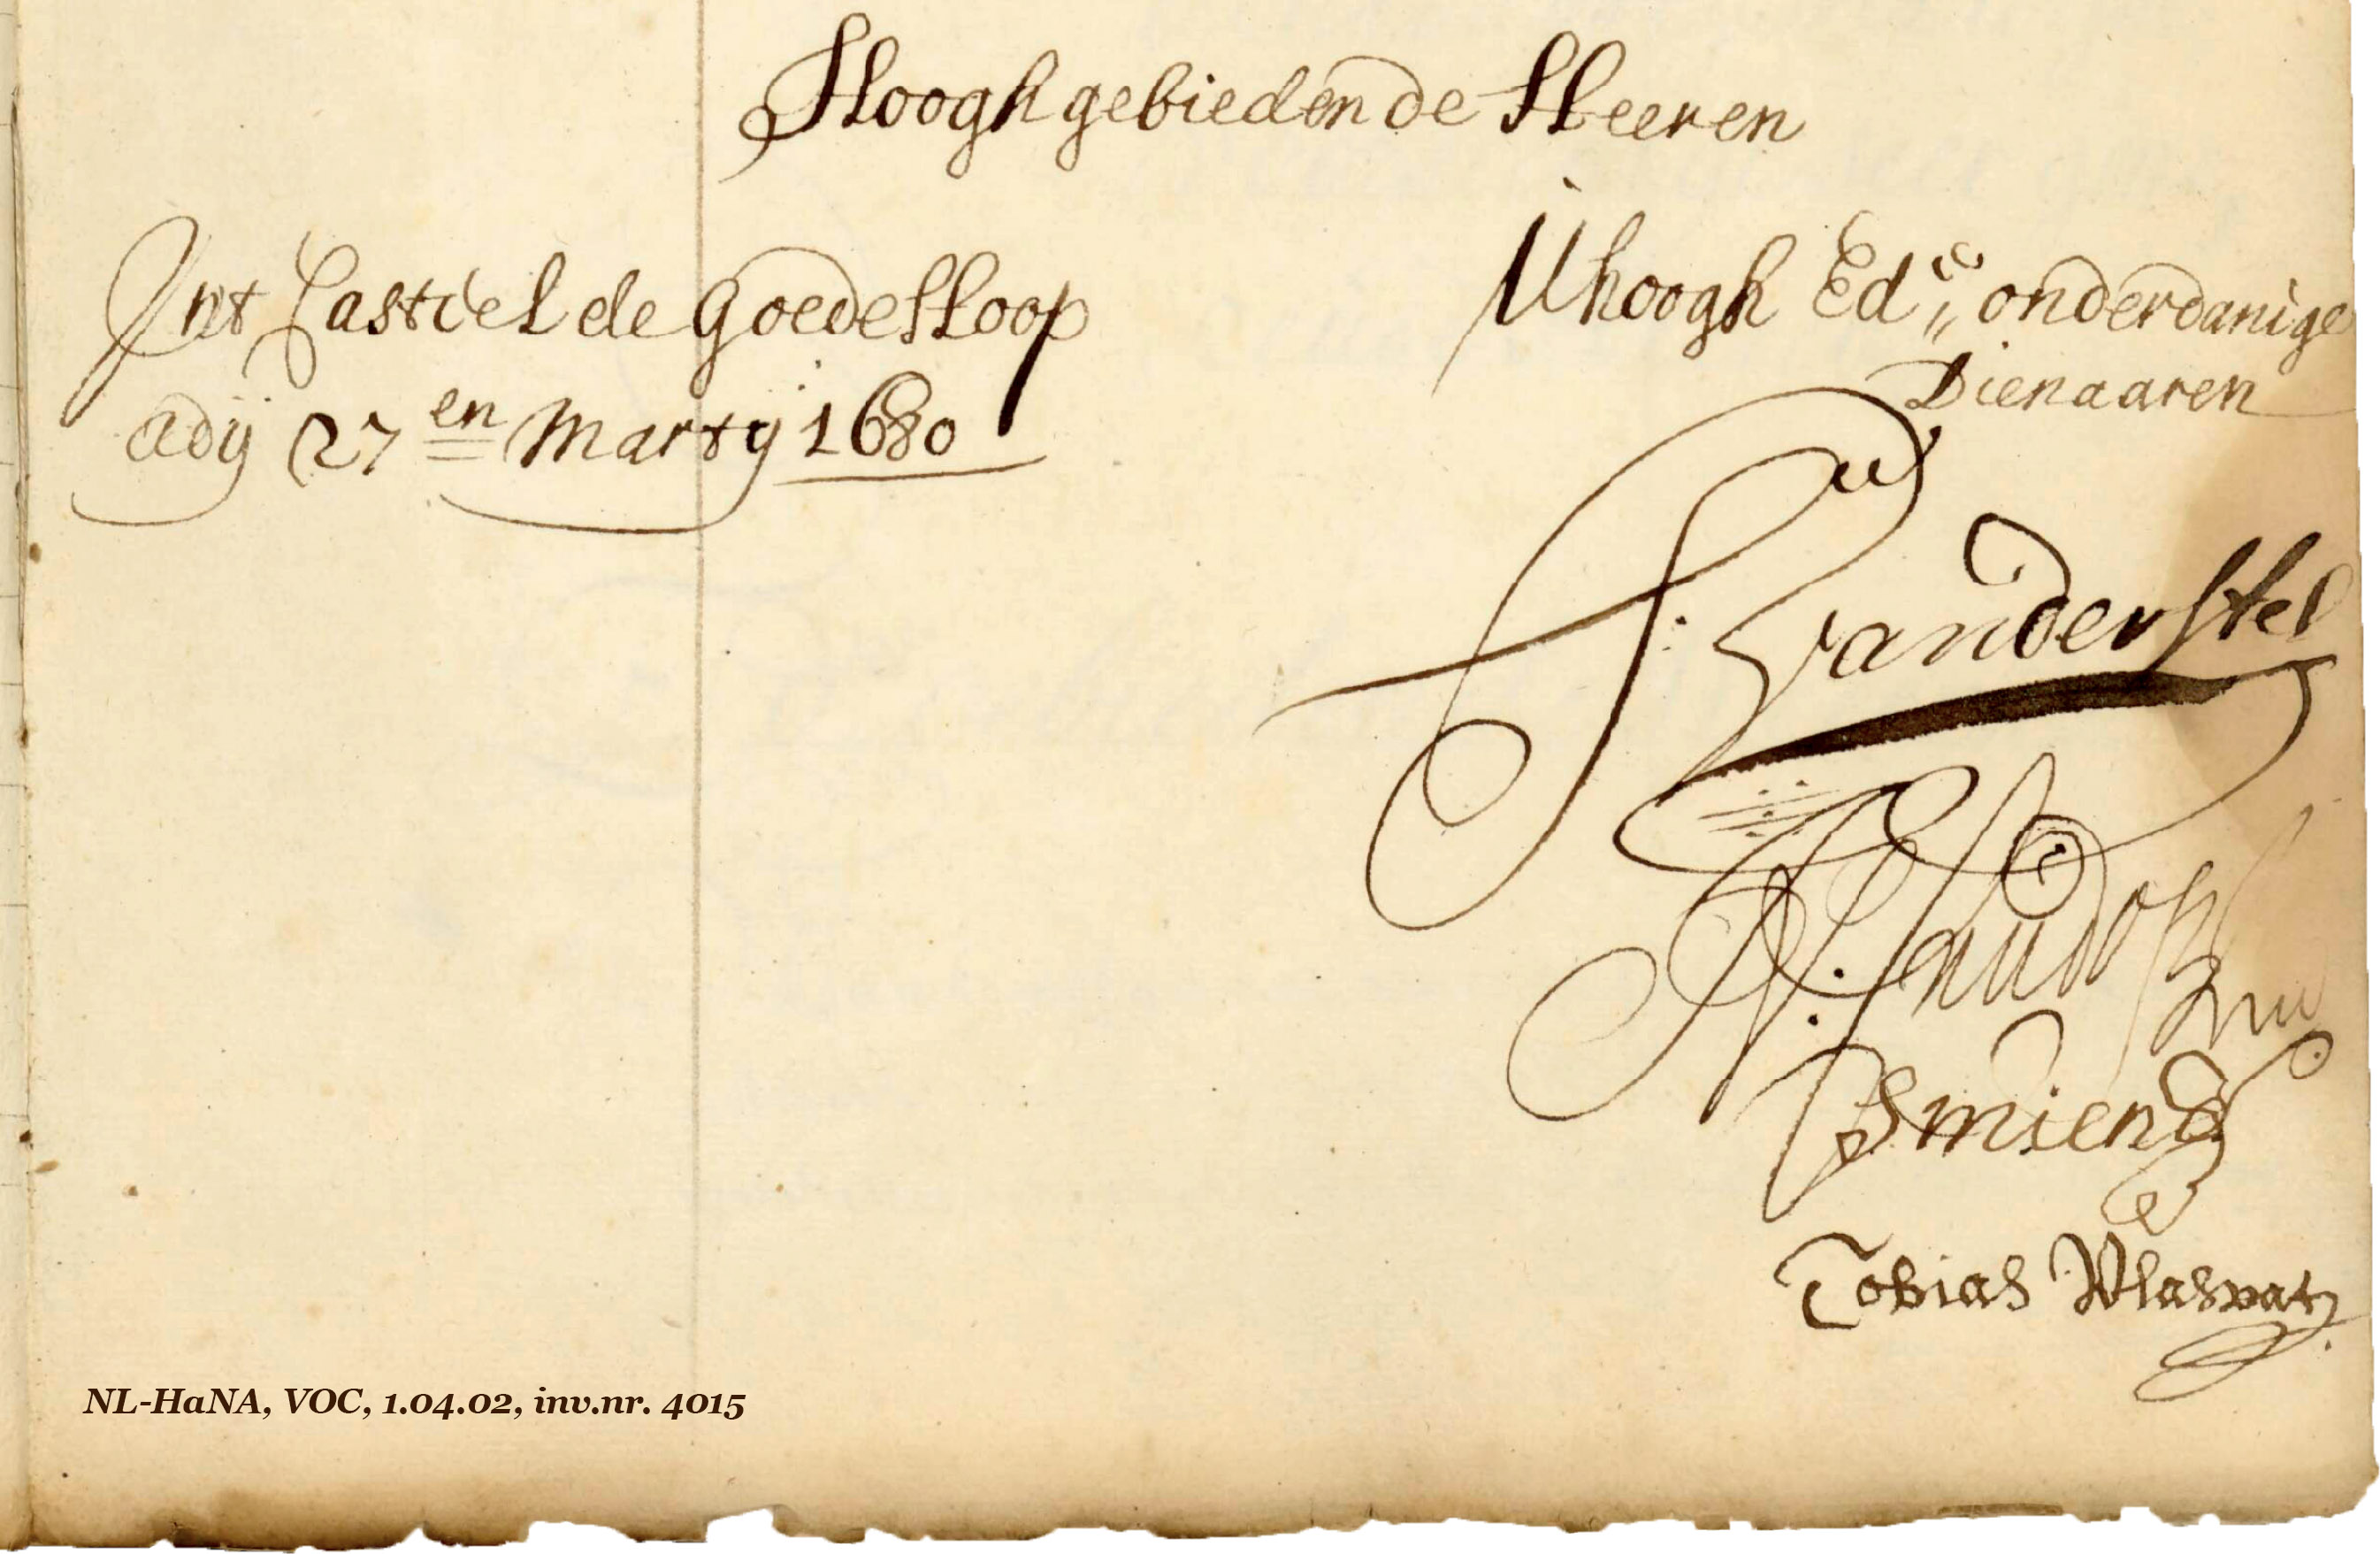 Hoogh gebiedende Heeren
Int Casteel de Goede Hoop
adij 27en Marty 1680
U hoogh Ed:e onderdanige
Dienaaren
S. vander Stel
Smient
Tobias Vlasvatz
NL-HaNA, VOC, 1.04.02, inv.nr. 4015